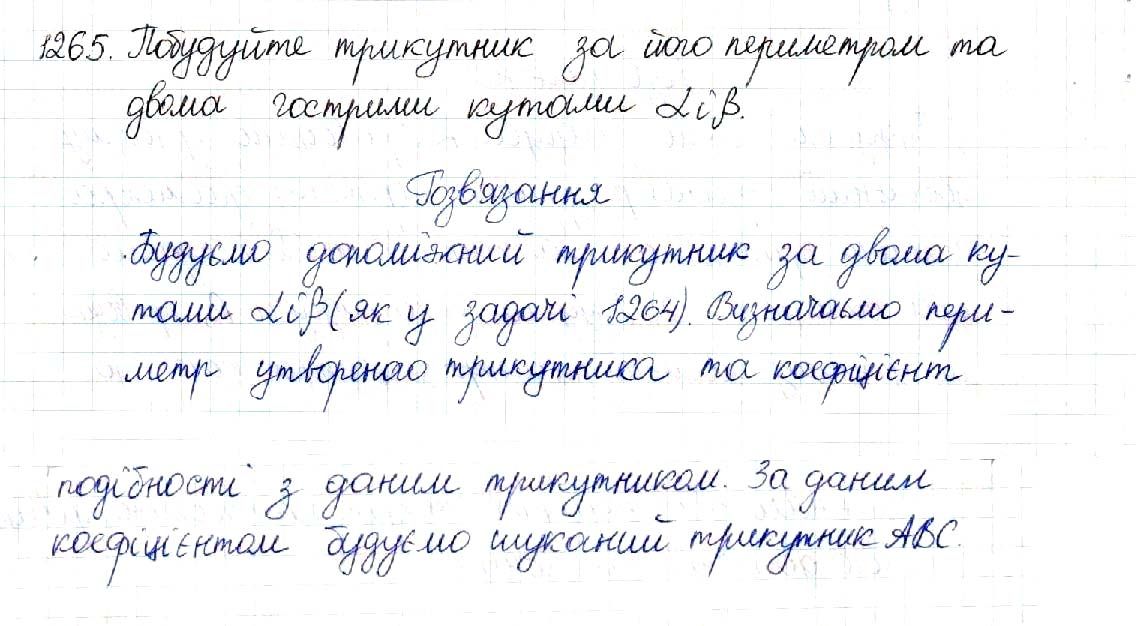 1265. Побудуйте трикутник за його периметром та
двома гострими кутами α і β.
Розв'язання
Будуємо допоміжний трикутник за двома ку-
тами α і β (як у задачі 1264). Визначаємо пери-
метр утвореного трикутника та коефіцієнт
подібності з даним трикутником. За даним
коефіцієнтом будуємо шуканий трикутник ABC.